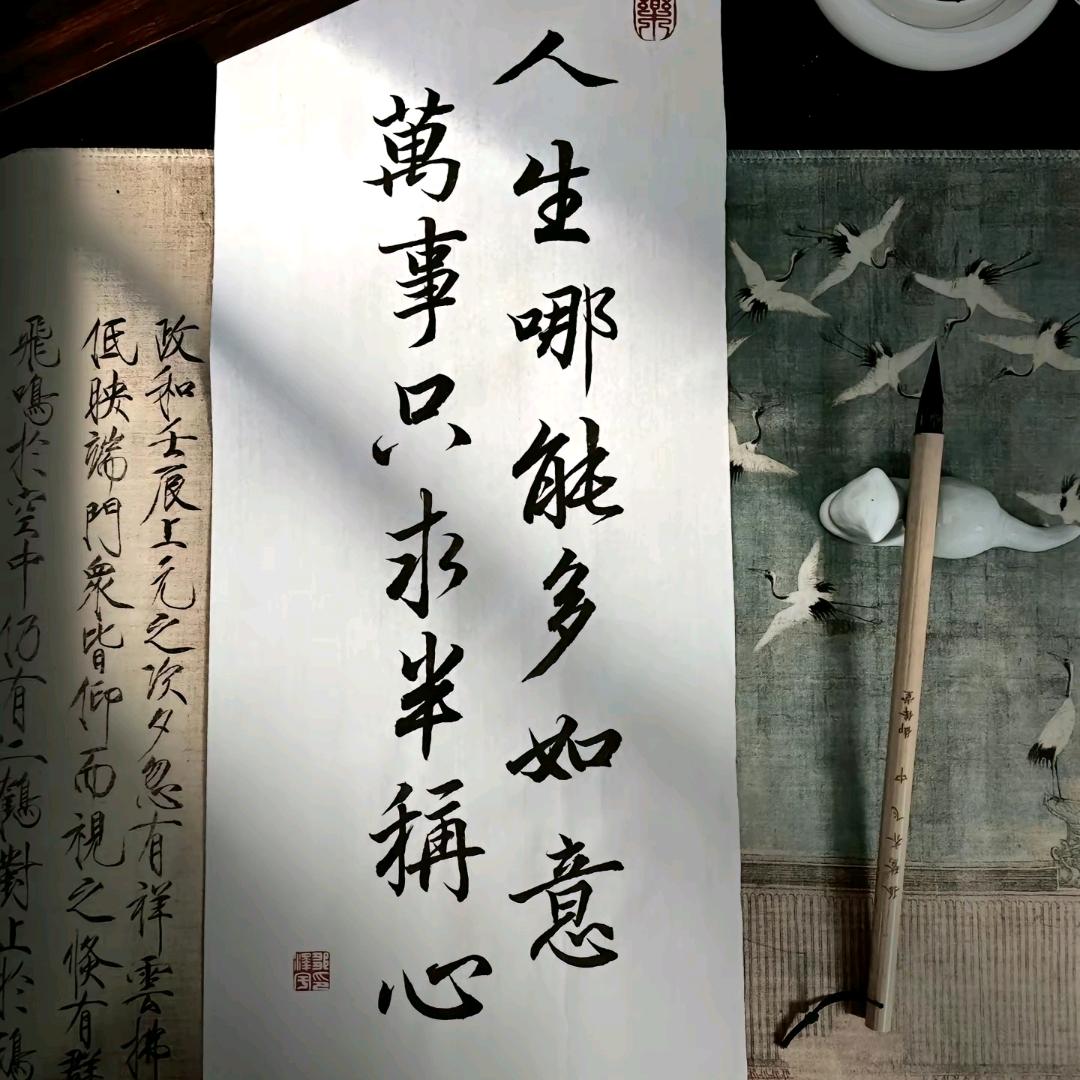 人生哪能多如意
萬事只求半稱心
政和壬辰上元之次夕忽有祥雲拂
低映端門衆皆仰而視之倏有群
飛鳴於空中仍有二鶴對止於鴟